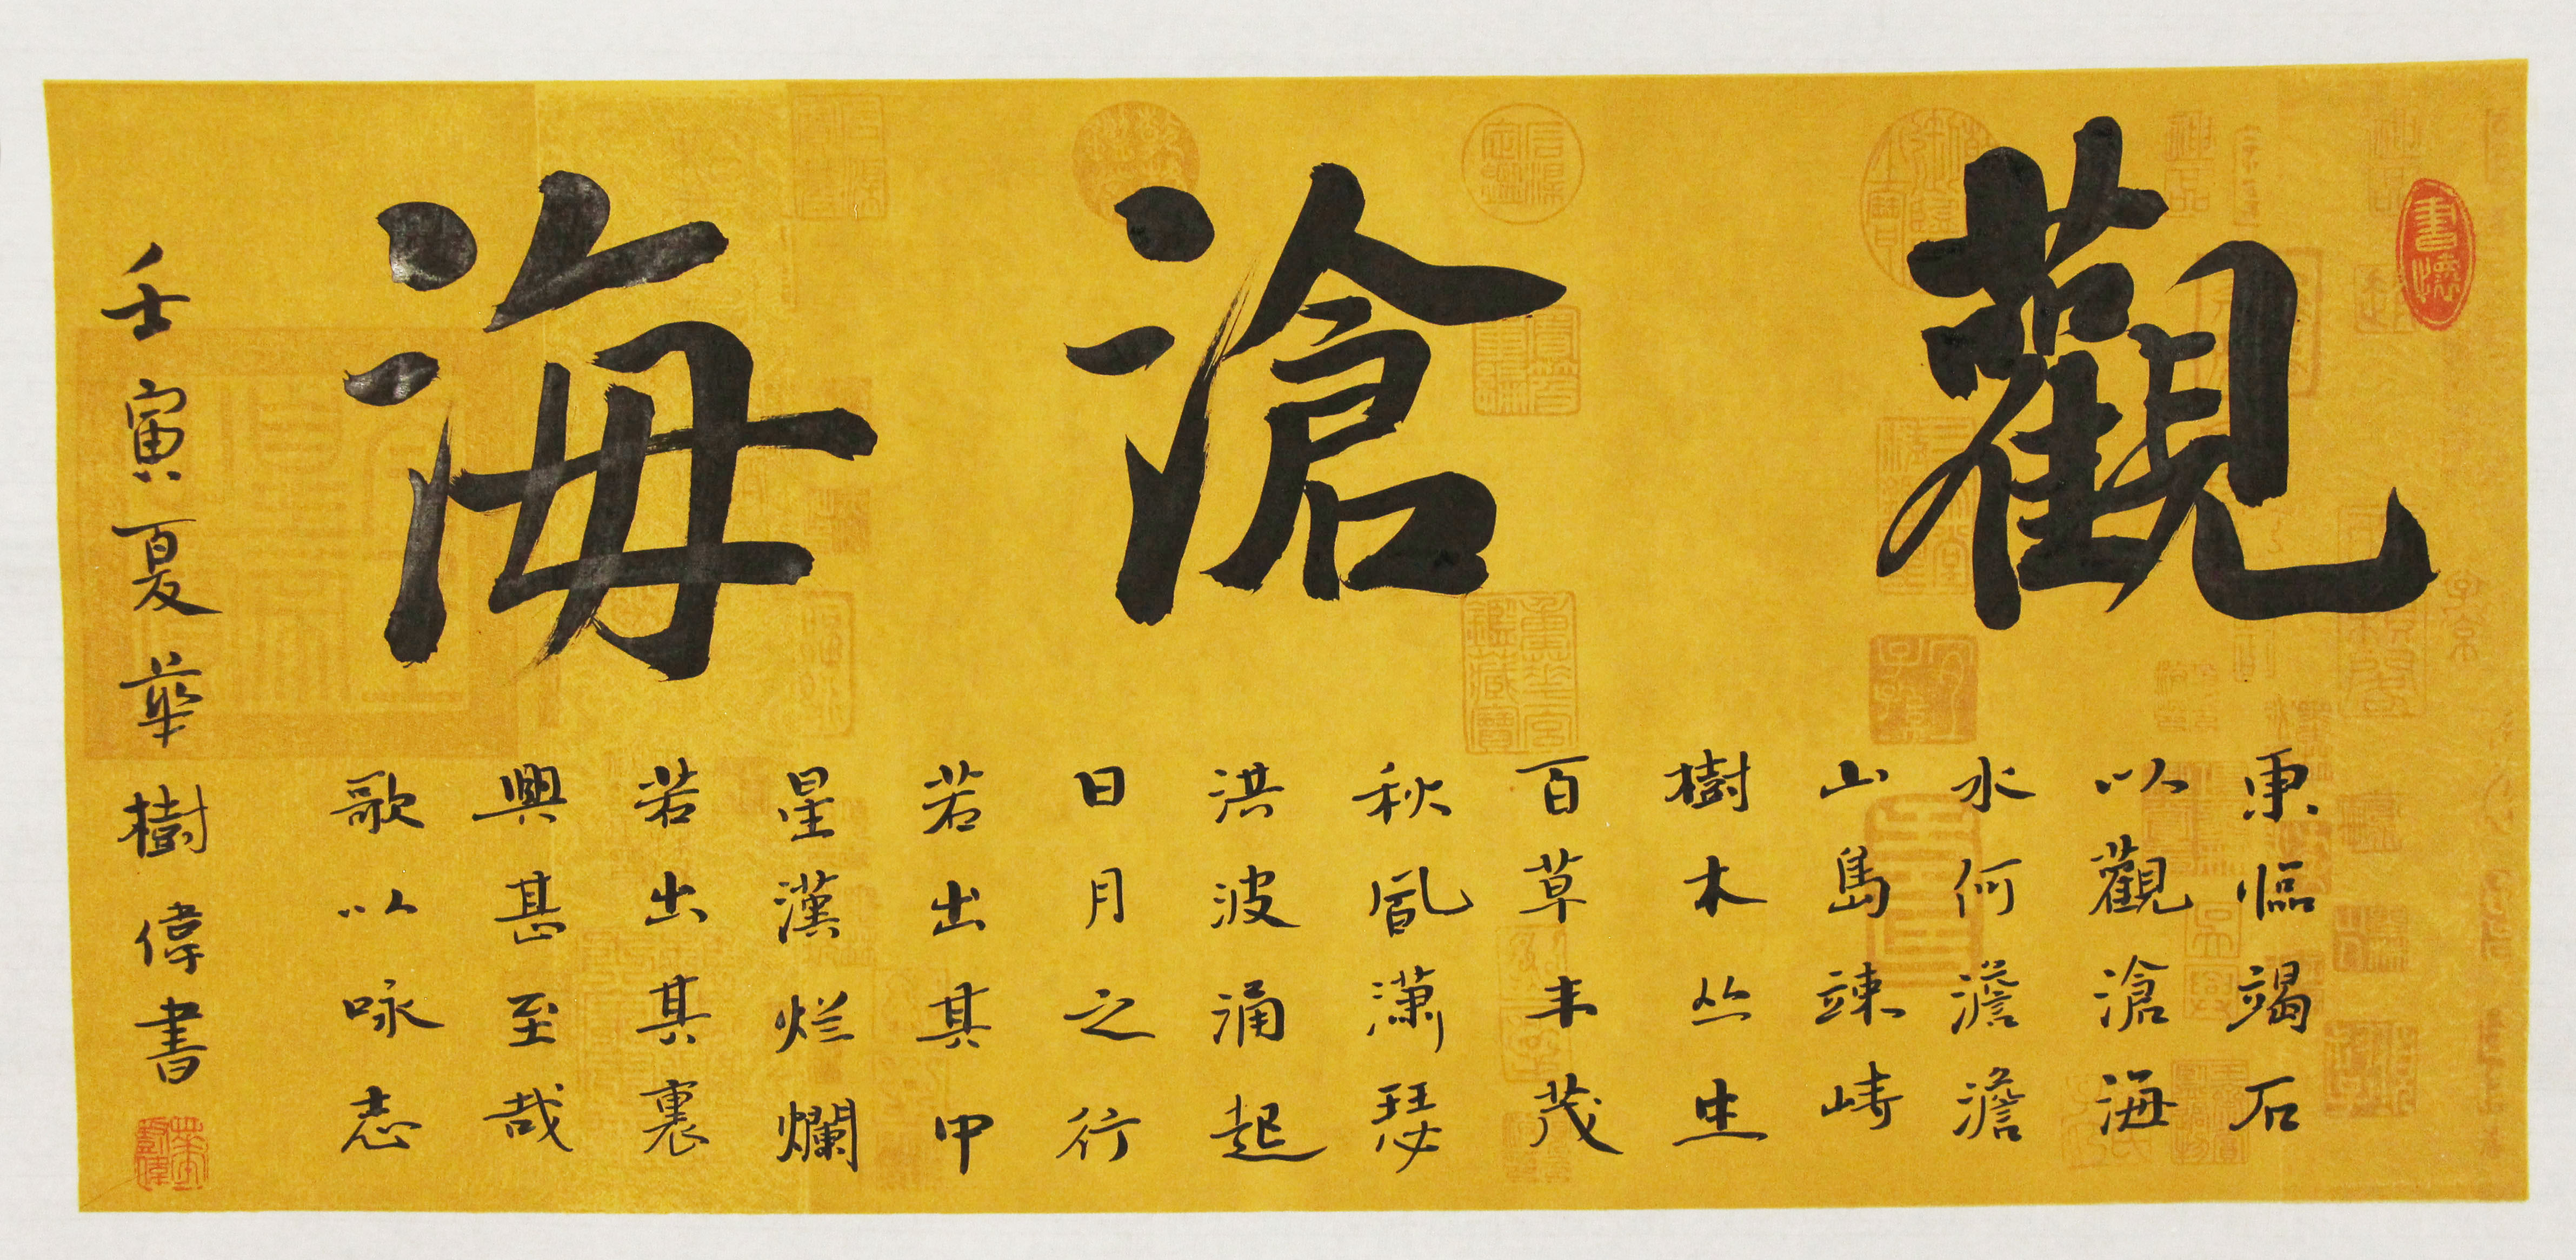 書懷
觀滄海
東臨竭石
以觀滄海
水何澹澹
山島竦峙
樹木丛生
百草丰茂
秋風瀟瑟
洪波涌起
日月之行
若出其中
星漢烂爛
若出其裏
興甚至哉
歌以咏志
壬寅夏華樹偉書
華樹偉